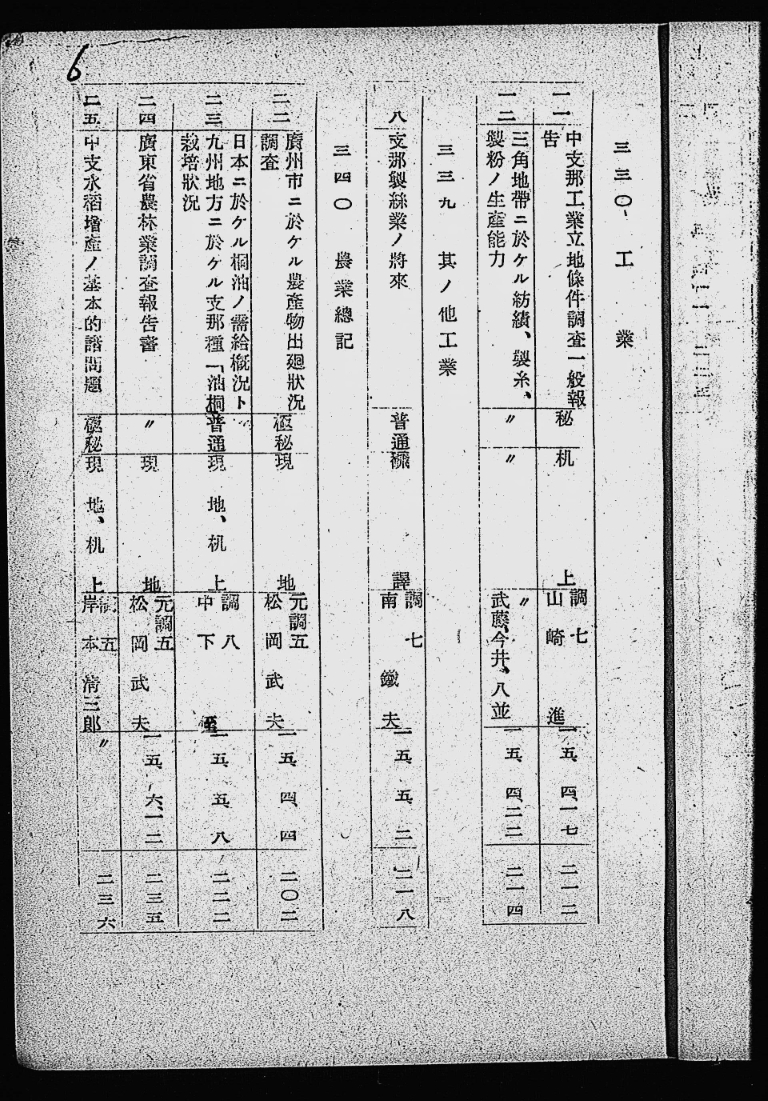 6
三三〇、工業
一一 中支那工業立地條件調査一般報告 秘 机上 調七 山崎進 一五、四、一七 二一二
一二 三角地帶ニ於ケル紡績、製糸、製粉ノ生產能力 〃 〃 〃 武藤、今井、八並 一五、四、二二 二一四
三三九 其ノ他工業
八 支那製絲業ノ將來 普通 飜譯 調七 南鐵夫 一五、五、二 二一八
三四〇 農業總記
二二 廣州市ニ於ケル農產物出廻狀況調査 極秘 現地 元調五 松岡武夫 一五、四、四 二〇二
二三 日本ニ於ケル桐油ノ需給槪況ト九州地方ニ於ケル支那種「油桐栽培狀況 普通 現地、机上 調八 中下 一五、五、八 二二二
二四 廣東省農林業調査報吿書 〃 現地 元調五 松岡武夫 一五、六、一二 二三五
二五 中支水稻增產ノ基本的諸問題 極秘 現地、机上 調五 岸本淸三郎 〃 二三六